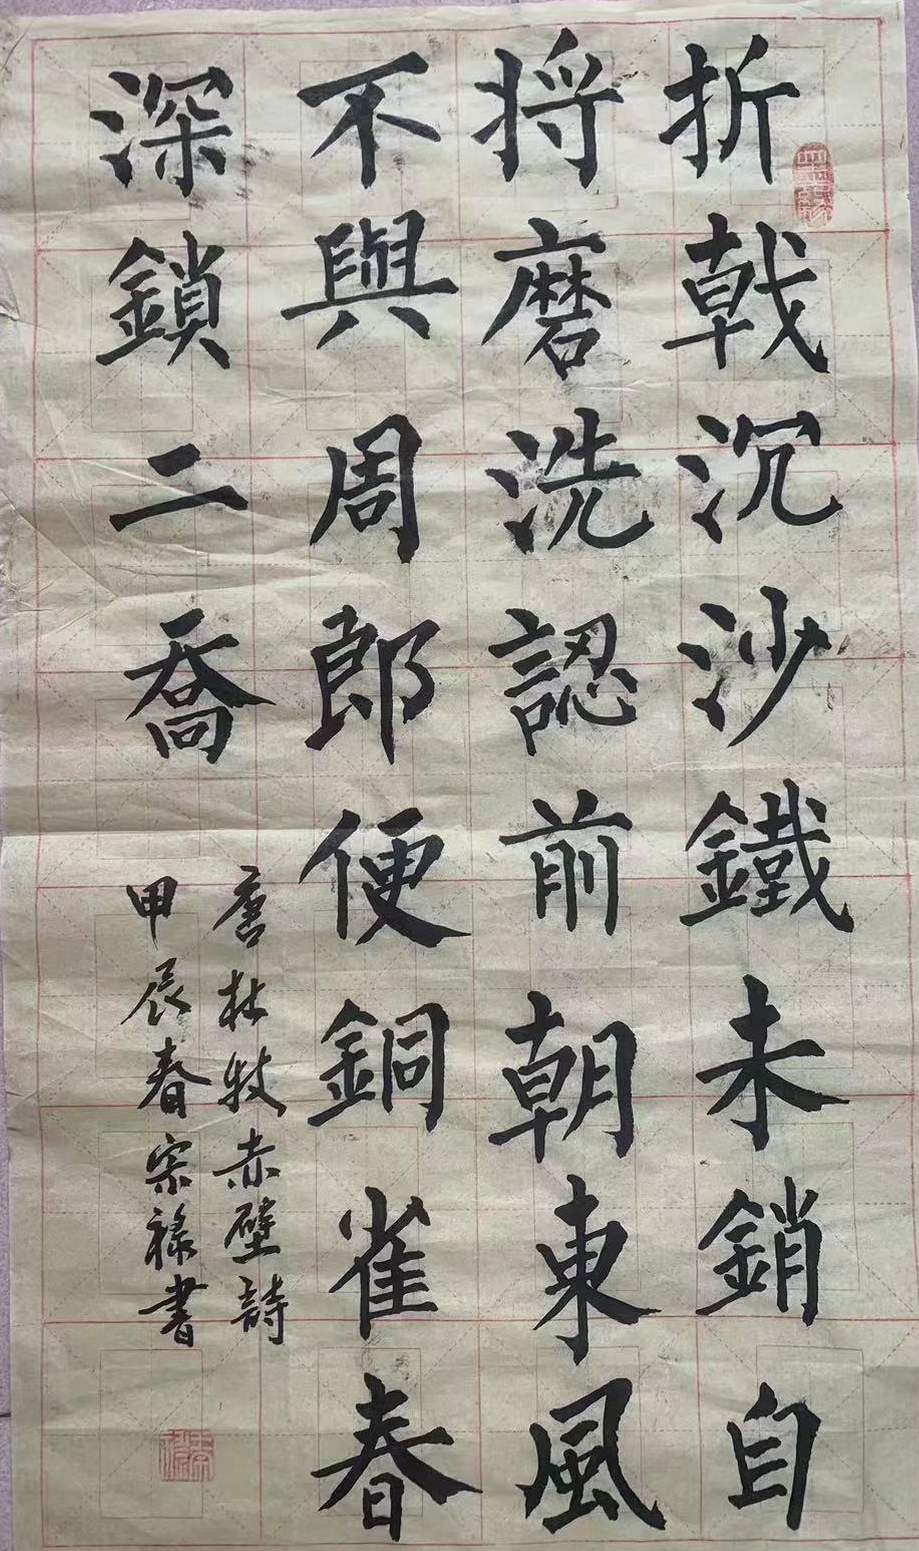 折戟沉沙鐵未銷自
将磨洗認前朝東風
不與周郎便銅雀春
深鎖二喬
唐杜牧赤壁詩
甲辰春宗祿書